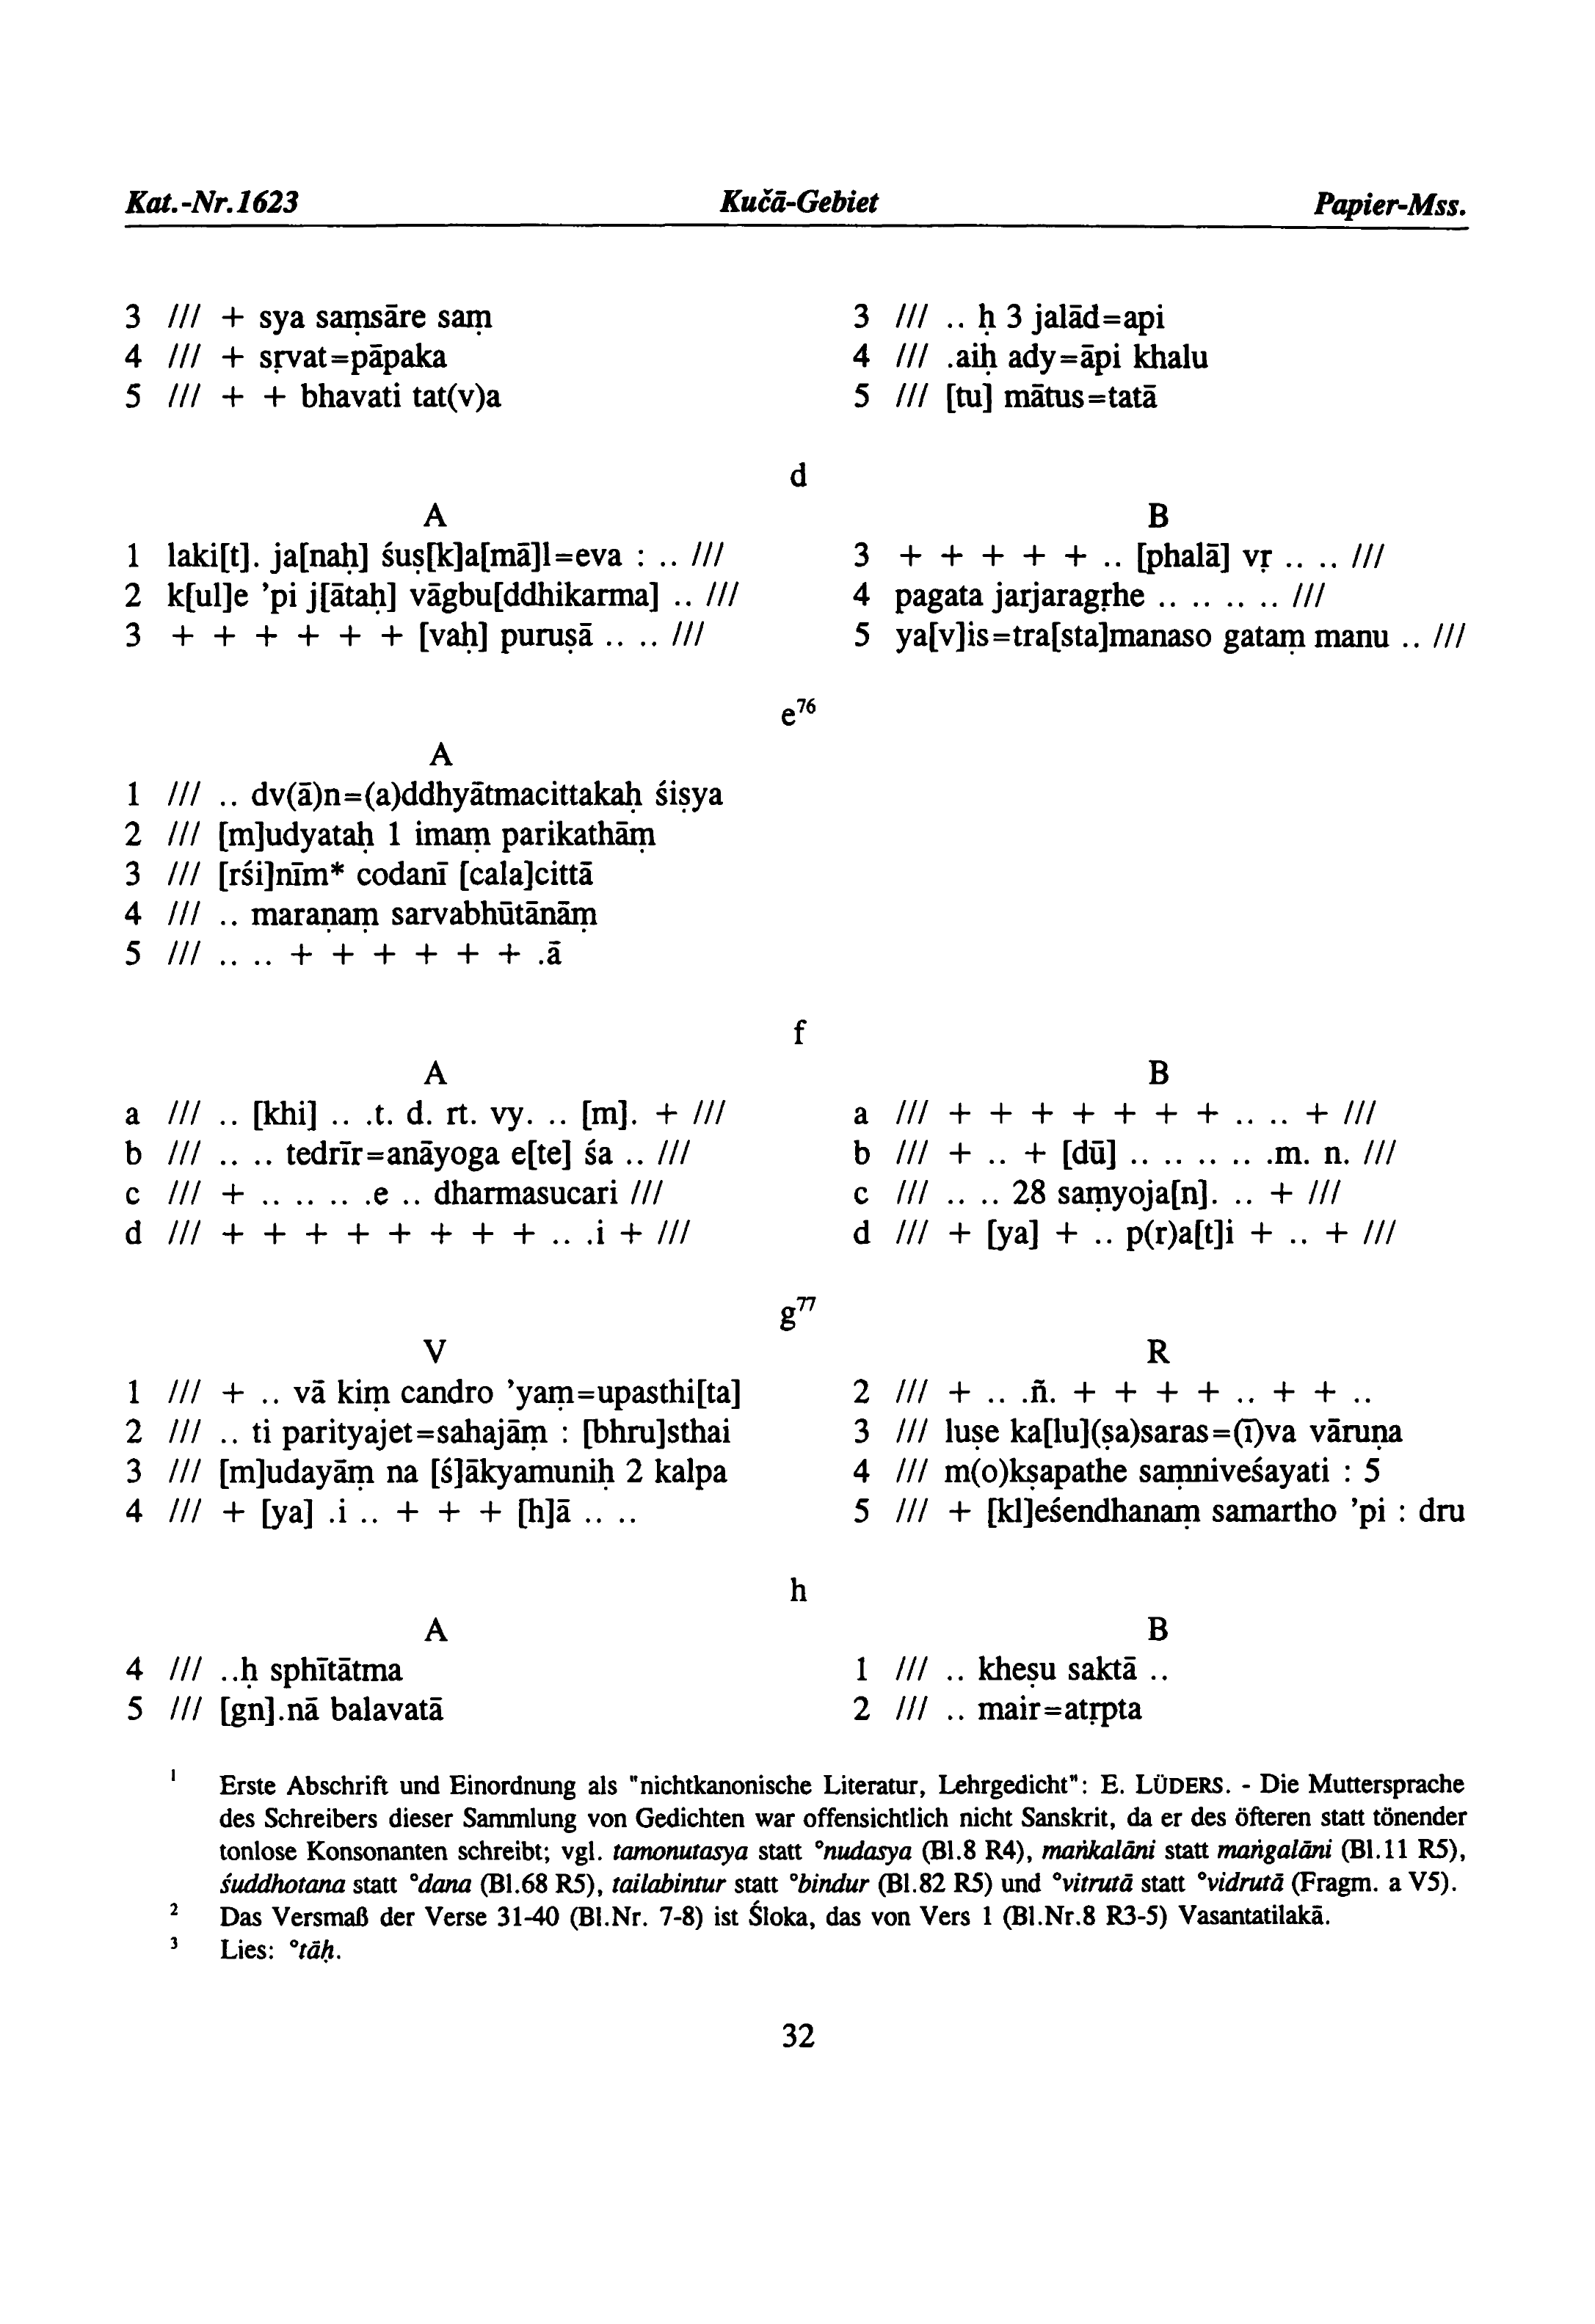 Kat.-Nr.1623 Kučā-Gebiet Papier-Mss.
3 /// + sya saṃsāre saṃ
4 /// + sṛvat=pāpaka
5 /// + + bhavati tat(v)a
3 /// .. ḥ 3 jalād=api
4 /// .aiḥ ady=āpi khalu
5 /// [tu] mātus=tatā
d
A
1 laki[t]. ja[naḥ] śuṣ[k]a[mā]l=eva : .. ///
2 k[ul]e ’pi j[ātaḥ] vāgbu[ddhikarma] .. ///
3 + + + + + + [vaḥ] puruṣā .. .. ///
B
3 + + + + + .. [phalā] vṛ .. .. ///
4 pagata jarjaragṛhe .. .. .. .. ///
5 ya[v]is=tra[sta]manaso gataṃ manu .. ///
e⁷⁶
A
1 /// .. dv(ā)n=(a)ddhyātmacittakaḥ śiṣya
2 /// [m]udyataḥ 1 imaṃ parikathāṃ
3 /// [rśi]nīm* codanī [cala]cittā
4 /// .. maraṇaṃ sarvabhūtānāṃ
5 /// .. .. + + + + + + .ā
f
A
a /// .. [khi] .. .t. d. rt. vy. .. [m]. + ///
b /// .. .. tedrīr=anāyoga e[te] śa .. ///
c /// + .. .. .. .e .. dharmasucari ///
d /// + + + + + + + + .. .i + ///
B
a /// + + + + + + + .. .. + ///
b /// + .. + [dū] .. .. .. .. .m. n. ///
c /// .. .. 28 saṃyoja[n]. .. + ///
d /// + [ya] + .. p(r)a[t]i + .. + ///
g⁷⁷
V
1 /// + .. vā kiṃ candro ’yaṃ=upasthi[ta]
2 /// .. ti parityajet=sahajāṃ : [bhru]sthai
3 /// [m]udayāṃ na [ś]ākyamuniḥ 2 kalpa
4 /// + [ya] .i .. + + + [h]ā .. ..
R
2 /// + .. .ñ. + + + + .. + + ..
3 /// luṣe ka[lu](ṣa)saras=(ī)va vāruṇa
4 /// m(o)kṣapathe saṃniveśayati : 5
5 /// + [kl]eśendhanaṃ samartho ’pi : dru
h
A
4 /// ..ḥ sphītātma
5 /// [gn].nā balavatā
B
1 /// .. kheṣu saktā ..
2 /// .. mair=atṛpta
¹ Erste Abschrift und Einordnung als "nichtkanonische Literatur, Lehrgedicht": E. LÜDERS. - Die Muttersprache
des Schreibers dieser Sammlung von Gedichten war offensichtlich nicht Sanskrit, da er des öfteren statt tönender
tonlose Konsonanten schreibt; vgl. tamonutasya statt °nudasya (Bl.8 R4), maṅkalāni statt maṅgalāni (Bl.11 R5),
śuddhotana statt °dana (Bl.68 R5), tailabintur statt °bindur (Bl.82 R5) und °vitrutā statt °vidrutā (Fragm. a V5).
² Das Versmaß der Verse 31-40 (Bl.Nr. 7-8) ist Śloka, das von Vers 1 (Bl.Nr.8 R3-5) Vasantatilakā.
³ Lies: °tāḥ.
32